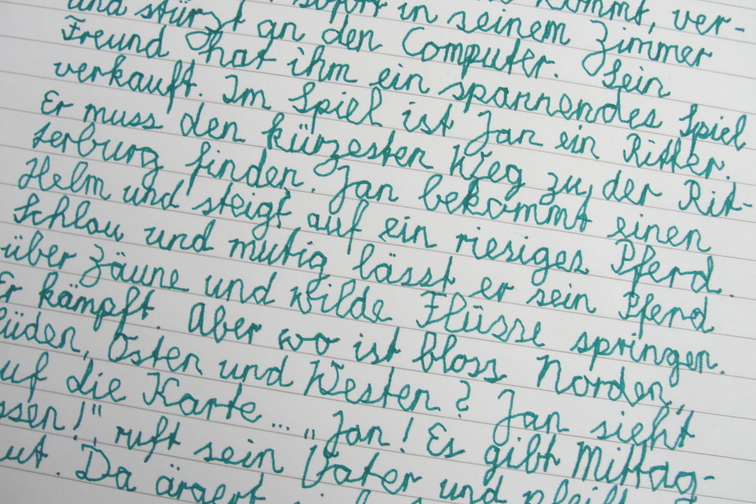 sofort in seinem Zimmer kommt, ver-
und stürzt an den Computer. Sein
Freund hat ihm ein spannendes Spiel
verkauft. Im Spiel ist Jan ein Ritter.
Er muss den kürzesten Weg zu der Rit-
terburg finden. Jan bekommt einen
Helm und steigt auf ein riesiges Pferd.
Schlau und mutig lässt er sein Pferd
über Zäune und wilde Flüsse springen.
Er kämpft. Aber wo ist bloss Norden,
Süden, Osten und Westen? Jan sieht
auf die Karte... "Jan! Es gibt Mittag-
ssen!", ruft sein Vater und
ut. Da ärgert